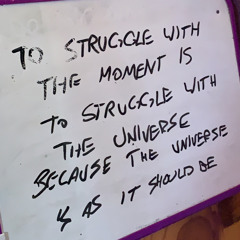 TO STRUGGLE WITH
THE MOMENT IS
TO STRUGGLE WITH
THE UNIVERSE
BECAUSE THE UNIVERSE
IS AS IT SHOULD BE